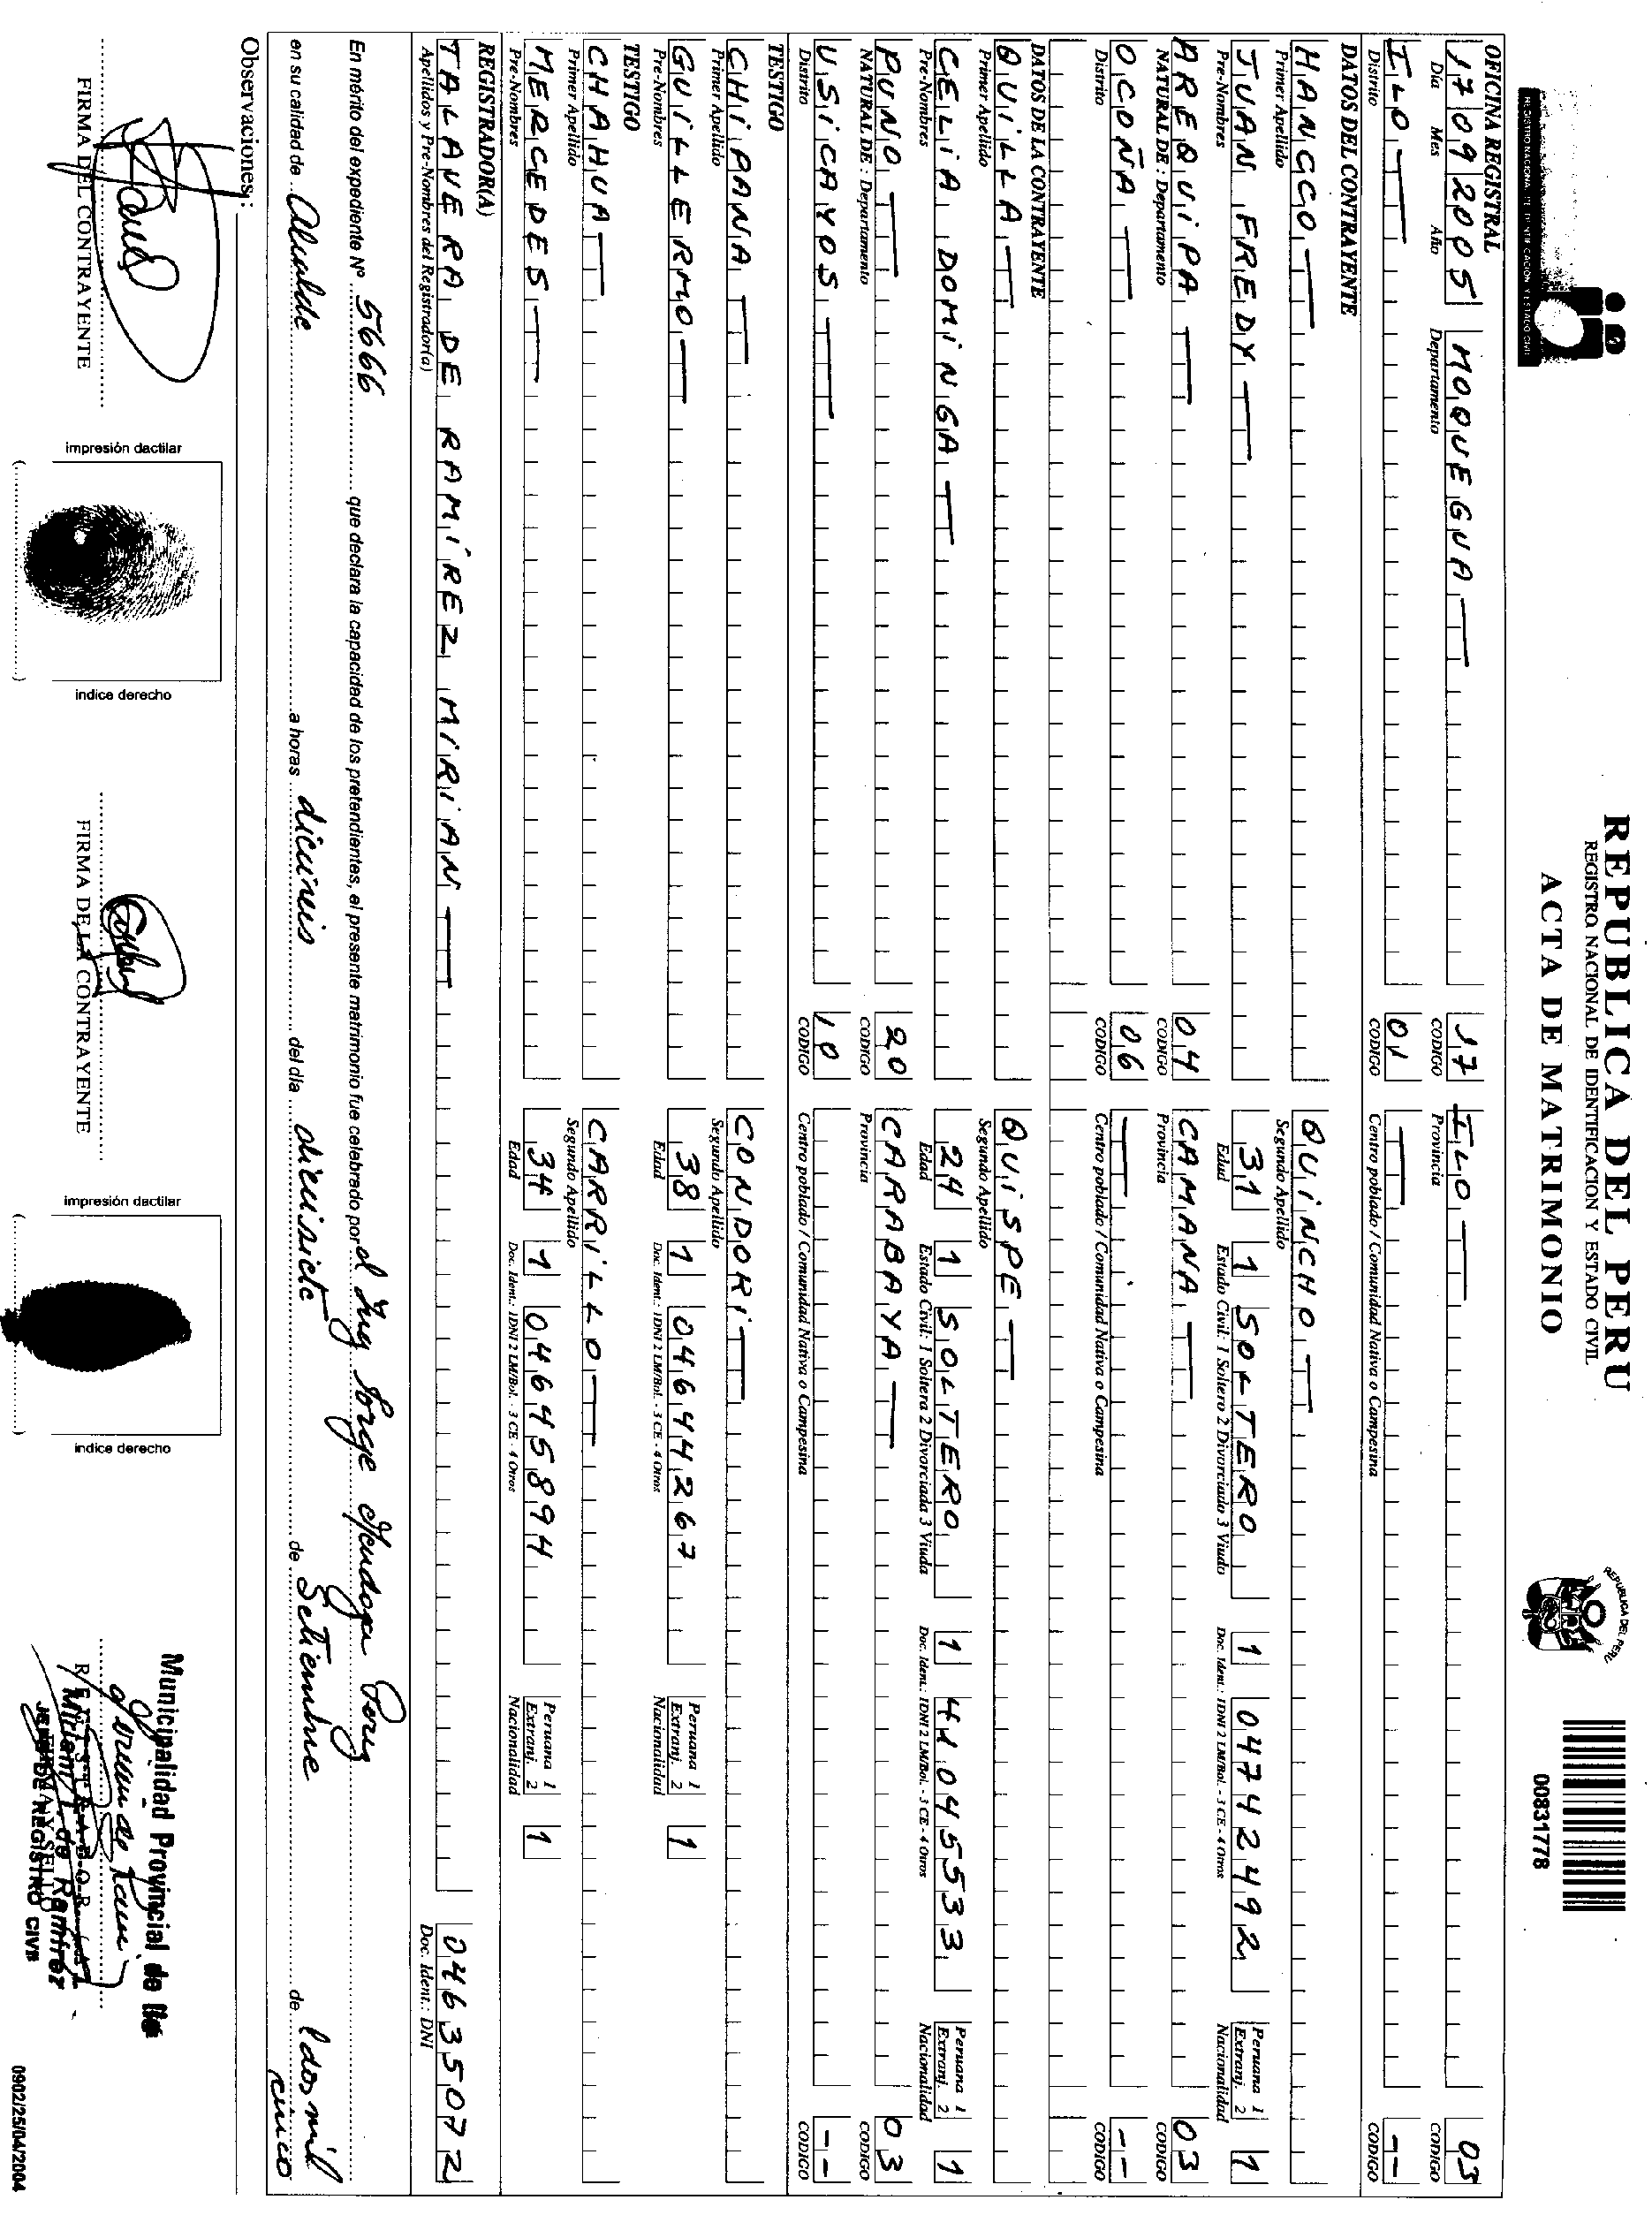 REPUBLICA DEL PERU
REGISTRO NACIONAL DE IDENTIFICACION Y ESTADO CIVIL
ACTA DE MATRIMONIO
REGISTRO NACIONAL DE IDENTIFICACION Y ESTADO CIVIL
REPUBLICA DEL PERU
00831778
OFICINA REGISTRAL
17 09 2005 MOQUEGUA 17 ILO 03
Dia Mes Año Departamento CODIGO Provincia CODIGO
ILO 01 --
Distrito CODIGO Centro poblado / Comunidad Nativa o Campesina CODIGO
DATOS DEL CONTRAYENTE
HANCCO QUINCHO
Primer Apellido Segundo Apellido
JUAN FREDY 31 1 SOLTERO 1 04742492 Peruana 1 Extranj. 2 1
Pre-Nombres Edad Estado Civil: 1 Soltero 2 Divorciado 3 Viudo Doc. Ident.: 1DNI 2 LM/Bol. - 3 CE - 4 Otros Nacionalidad
AREQUIPA 04 CAMANA 03
NATURAL DE : Departamento CODIGO Provincia CODIGO
OCOÑA 06 --
Distrito CODIGO Centro poblado / Comunidad Nativa o Campesina CODIGO
DATOS DE LA CONTRAYENTE
QUILLA QUISPE
Primer Apellido Segundo Apellido
CELIA DOMINGA 24 1 SOLTERO 1 41045533 Peruana 1 Extranj. 2 1
Pre-Nombres Edad Estado Civil: 1 Soltera 2 Divorciada 3 Viuda Doc. Ident.: 1DNI 2 LM/Bol. - 3 CE - 4 Otros Nacionalidad
PUNO 20 CARABAYA 03
NATURAL DE : Departamento CODIGO Provincia CODIGO
USICAYOS 10 --
Distrito CODIGO Centro poblado / Comunidad Nativa o Campesina CODIGO
TESTIGO
CHIPANA CONDORI
Primer Apellido Segundo Apellido
GUILLERMO 38 1 04644267 Peruana 1 Extranj. 2 1
Pre-Nombres Edad Doc. Ident.: 1DNI 2 LM/Bol. - 3 CE - 4 Otros Nacionalidad
TESTIGO
CHAHUA CARRILLO
Primer Apellido Segundo Apellido
MERCEDES 34 1 04645894 Peruana 1 Extranj. 2 1
Pre-Nombres Edad Doc. Ident.: 1DNI 2 LM/Bol. - 3 CE - 4 Otros Nacionalidad
REGISTRADOR(A)
TALAVERA DE RAMÍREZ MIRIAN 04635072
Apellidos y Pre-Nombres del Registrador(a) Doc. Ident.: DNI
En mérito del expediente Nº 5666 que declara la capacidad de los pretendientes, el presente matrimonio fue celebrado por el Ing Jorge Mendoza Perez
en su calidad de Alcalde a horas dieciseis del día diecisiete de Setiembre de dos mil cinco
Observaciones:
FIRMA DEL CONTRAYENTE
impresión dactilar
indice derecho
FIRMA DE LA CONTRAYENTE
impresión dactilar
indice derecho
Municipalidad Provincial de Ilo
REGISTRADOR
Miriam T. de Ramírez
FIRMA Y SELLO
JEFE DE REGISTRO CIVIL
0902/25/04/2004